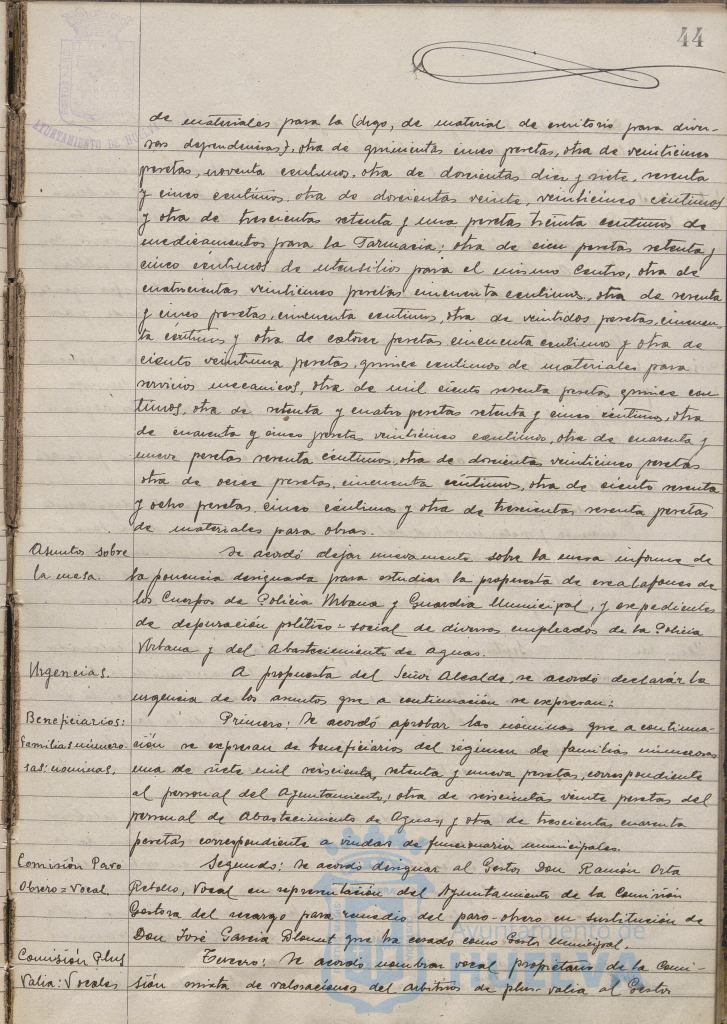 44
AYUNTAMIENTO DE HUELVA
de materiales para la (digo, de material de escritorio para diver-
sas dependencias), otra de quinientas cinco pesetas, otra de veinticinco
pesetas, noventa centimos, otra de doscientas diez y siete, sesenta
y cinco centimos, otra de doscientas veinte, veinticinco centimos
y otra de trescientas setenta y una pesetas treinta centimos de
medicamentos para la Farmacia; otra de cien pesetas setenta y
cinco centimos de utensilios para el mismo Centro, otra de
cuatrocientas veinticinco pesetas cincuenta centimos, otra de sesenta
y cinco pesetas, cincuenta centimos, otra de veintidos pesetas, cincuen-
ta centimos y otra de catorce pesetas cincuenta centimos y otra de
ciento veintiuna pesetas, quince centimos de materiales para
servicios mecanicos, otra de mil ciento sesenta pesetas quince cen-
timos, otra de setenta y cuatro pesetas setenta y cinco centimos, otra
de cuarenta y cinco pesetas veinticinco centimos, otra de cuarenta y
nueve pesetas sesenta centimos, otra de doscientas veinticinco pesetas
otra de once pesetas, cincuenta centimos, otra de ciento sesenta
y ocho pesetas, cinco centimos y otra de trescientas sesenta pesetas
de materiales para obras.
Asuntos sobre
la mesa.
Se acordó dejar nuevamente sobre la mesa informe de
la ponencia designada para estudiar la propuesta de escalafones de
los Cuerpos de Policia Urbana y Guardia Municipal, y expedientes
de depuración político=social de diversos empleados de la Policia
Urbana y del Abastecimiento de Aguas.
Urgencias.
A propuesta del Señor Alcalde, se acordó declarár la
urgencia de los asuntos que a continuación se expresan:
Beneficiarios:
familias numero-
sas: nominas.
Primero: Se acordó aprobar las nóminas que a continua-
ción se expresan de beneficiarios del régimen de familias numerosas
una de siete mil seiscienta, setenta y nueva pesetas, correspondiente
al personal del Ayuntamiento; otra de seiscientas veinte pesetas del
personal de Abastecimiento de Aguas y otra de trescientas cuarenta
pesetas correspondiente a viudas de funcionarios municipales.
Comisión Paro
Obrero=Vocal
Segundo: Se acordó designar al Gestor Don Ramón Orta
Rebollo, Vocal en representación del Ayuntamiento de la Comisión
Gestora del recargo para remedio del paro-obrero en sustitución de
Don José Garcia que ha cesado como Gestor Municipal.
Comisión Plus
Valia: Vocales
Tercero: Se acordó nombrar vocal propietario de la Comi-
sión mixta de valoraciones del arbitrio de plus-valia al Gestor
Ayuntamiento de
HUELVA